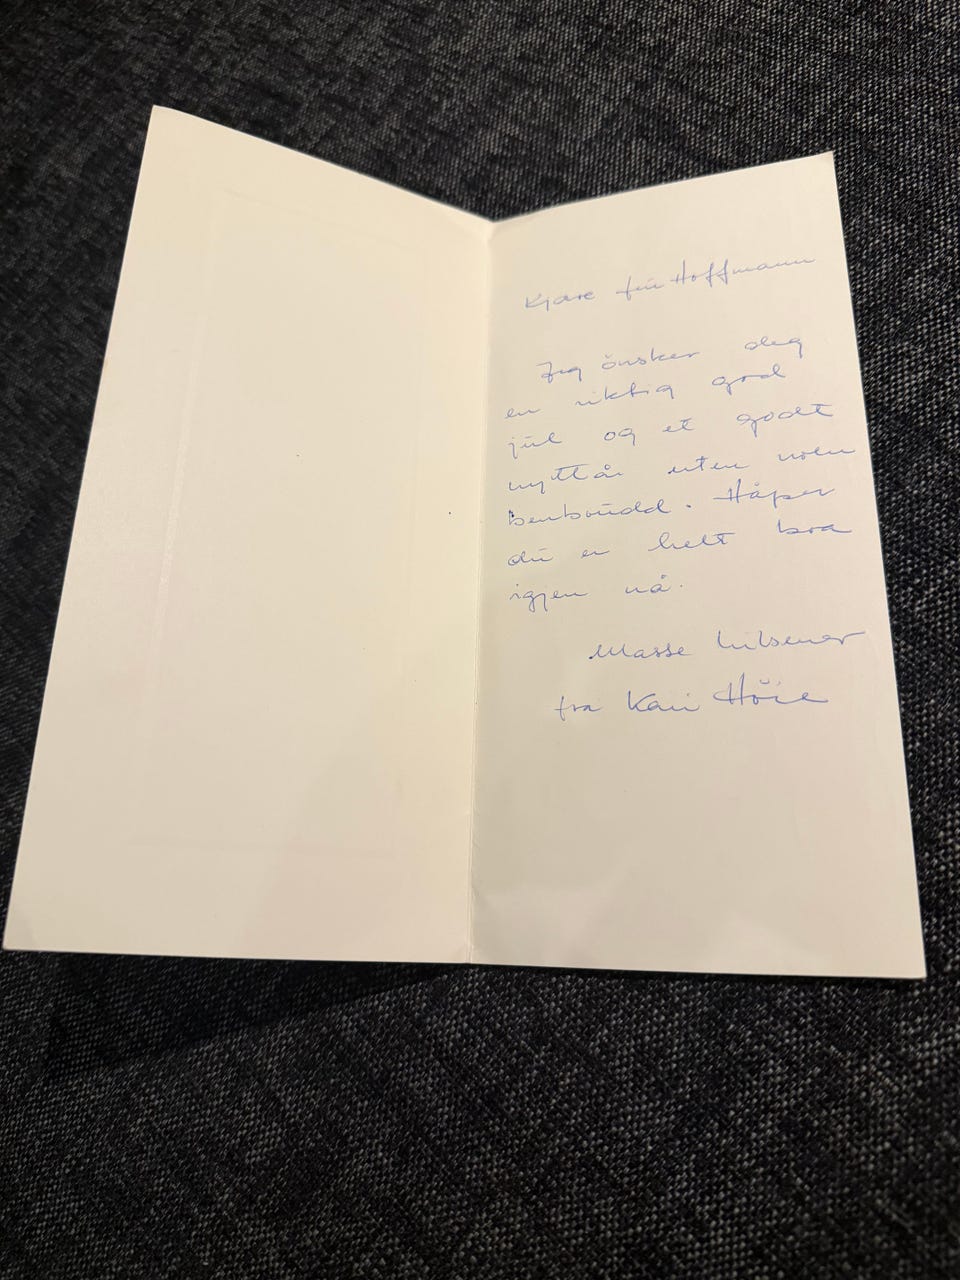 Kjære fru Hoffmann
Jeg önsker deg
en riktig god
jul og et godt
nyttår uten noen
benbrudd. Håper
du er helt bra
igjen nå.
Masse hilsener
fra Kari Höie